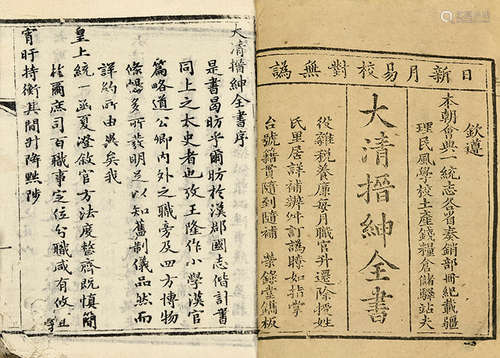 日新月易校對無訛
欽遵
本朝會典一統志各省奏銷部冊紀載疆
理民風學校土產錢糧倉儲驛站夫
大清搢紳全書
役雜稅養廉每月職官升遷除授姓
氏里居詳補辦舛訂譌瞭如指掌
台號籍貫隨到隨補 榮錄堂鐫板
大清搢紳全書序
是書曷昉乎爾昉於漢郡國志偕計書
同上之太史者也攷王隆作小學漢官
篇略道公卿內外之職旁及四方博物
條暢多所發明足以知舊制儀品然而
詳約所由異矣我
皇上統一函夏澄敘官方法度整齊既慎簡
爾庶司百職事定位分職咸有攸且
宵旰持衡其間升降黜陟